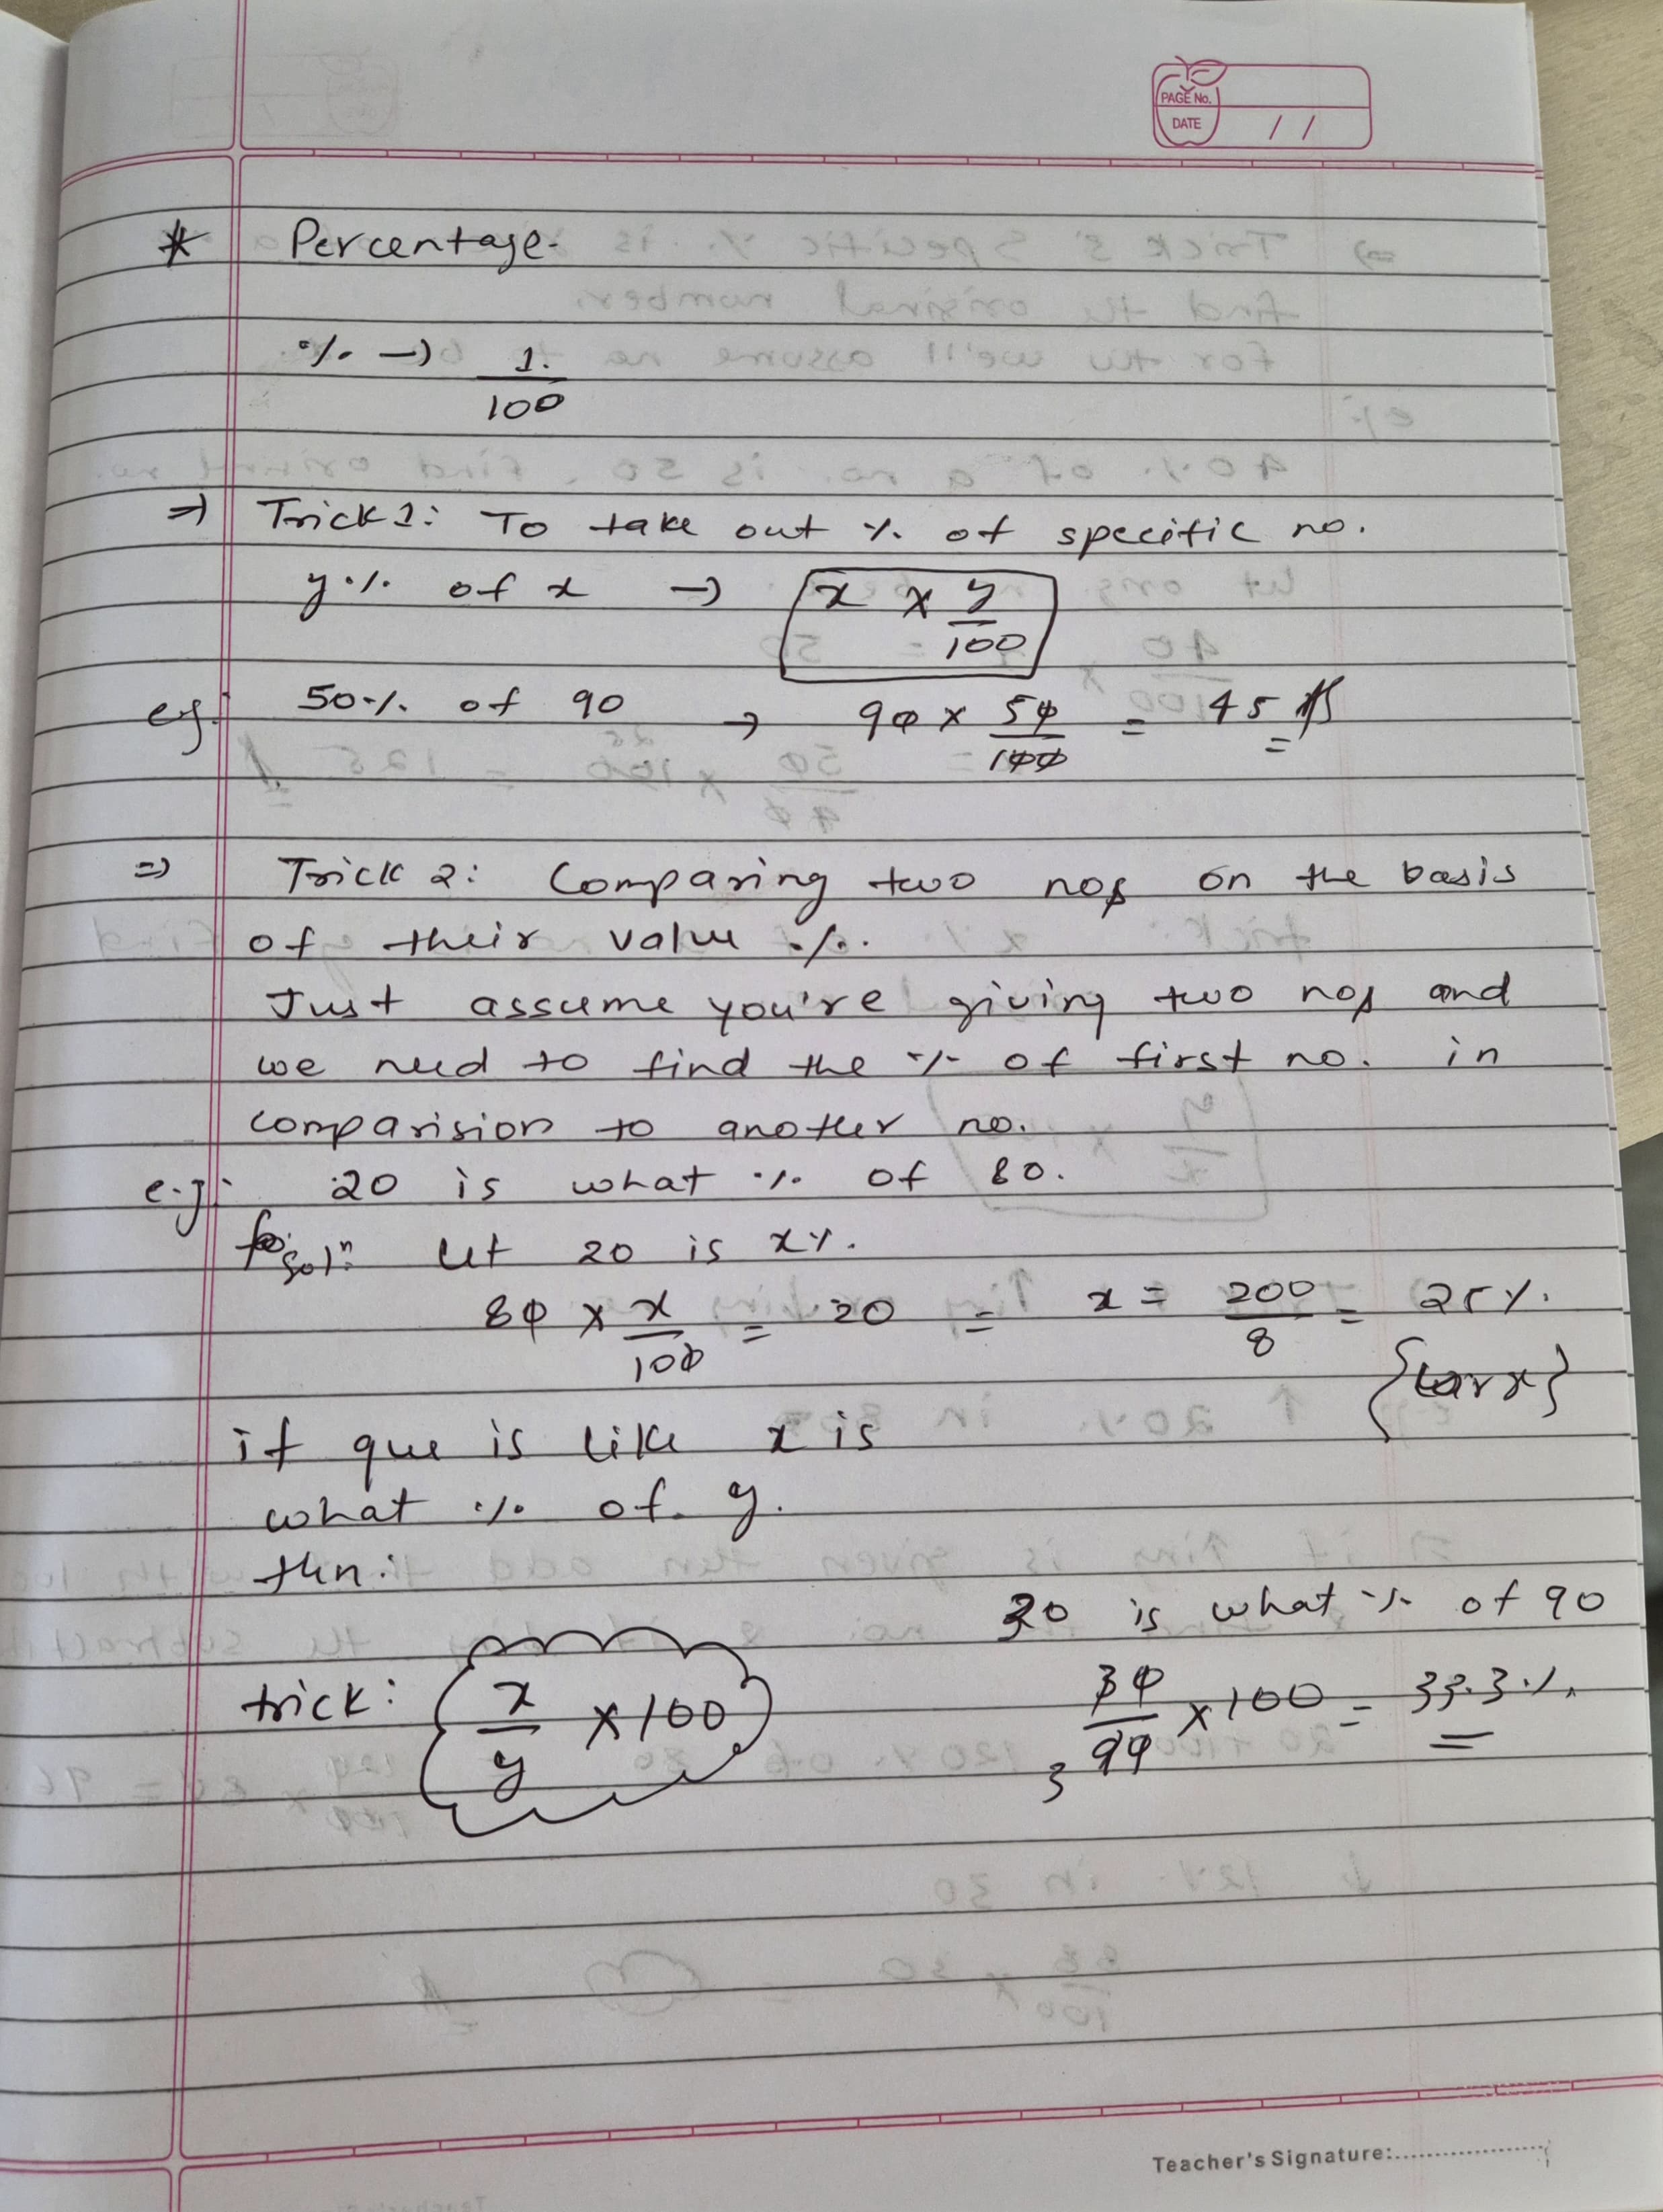 PAGE No.
DATE / /
* Percentage.
% → 1/100
⇒ Trick 1: To take out % of specific no.
y% of x → x × y/100
eg: 50% of 90 → 90 × 50/100 = 45
⇒ Trick 2: Comparing two nos on the basis
of their value %.
Just assume you're giving two nos and
we need to find the % of first no. in
comparision to another no.
e.g: 20 is what % of 80.
solⁿ: let 20 is x%.
80 × x/100 = 20 = x = 200/8 = 25%.
if que is like x is
what % of y.
then:
30 is what % of 90
trick: x/y × 100
30/90 × 100 = 33.3%
3
Teacher's Signature: